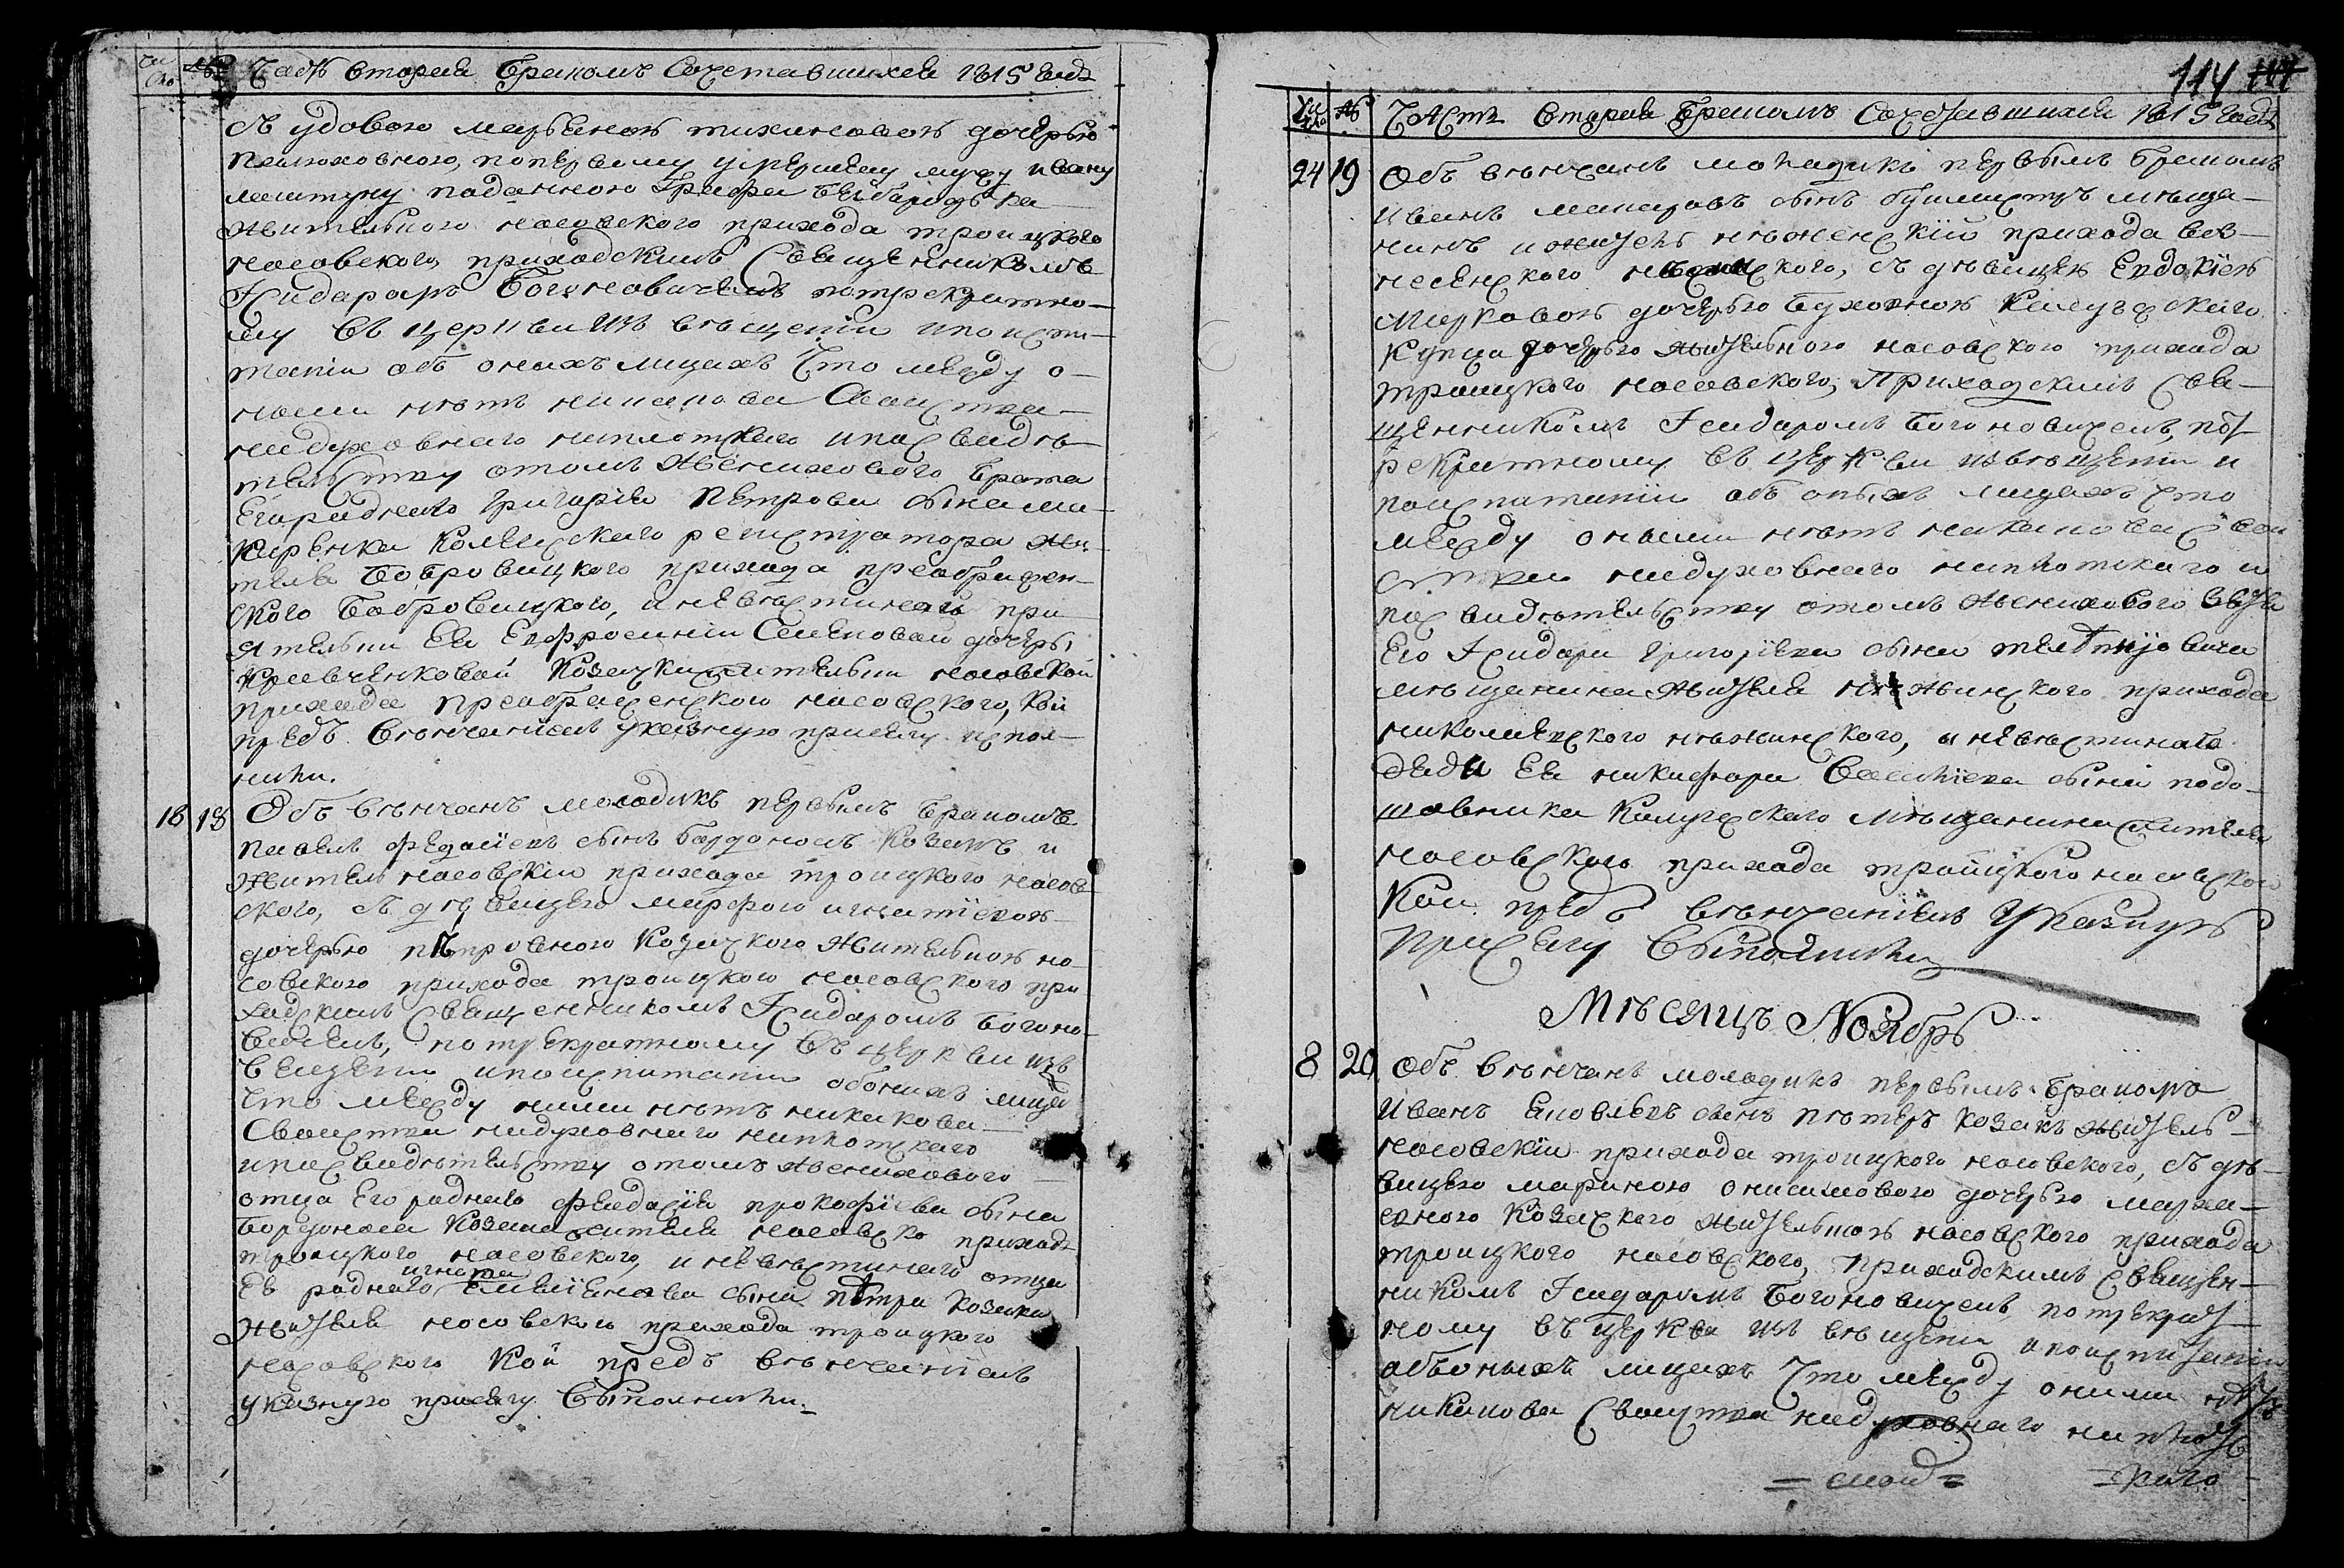 Чи сло № Часть вторая Бракомъ Сочетавшихся 1815 года
Съ удовою марьяною тихоновою дочерью
по первому умершему мужу ивану
подданною Графа безбародька
жительного носовского прихода троицкого
носовского приходскимъ Священникомъ
Ісидаромъ Богоновичемъ потрекратно-
му въ церкви извѣщеніи и поиспы-
таніи объ оныхъ лицахъ Что между о-
ными нѣтъ никакова Свойства
нидуховнаго ниплотскаго ипосвидѣ-
тельству отомъ Жениховаго брата
Егороднаго Григорія Петрова сына ма-
каренка Колежского регистратора жи-
теля Бобровицкого прихода преображен-
ского Бобровицкого, и невѣстинаго при
ятельки Ея Евфросиніи Семеновой дочери
кравченковой Козачки жительки носовской
прихода преображенского носовского, Кои
предъ Вѣнчаніемъ указную присягу испол-
нили.
18 18 Объ вѣнчанъ молодикъ первымъ бракомъ
павелъ федосіевъ сынъ бордоносъ Козакъ и
житель носовскій прихода троицкого носов
ского, съ дѣвицею марфою игнатіевою
дочерью пѣтровною Козачкою жителькою но-
совского прихода троицкого носовского при
ходскимъ Священникомъ Ісидаромъ Богоно-
вичемъ, потрекратному въ церкви изв
ѣщеніи ипоиспытаніи обоныхъ лицахъ
Что между ними нѣтъ никакова
Свойства нидуховнаго ниплотскаго
ипосвидѣтельству отомъ Жениховаго
отца Его роднаго федосія прокофіева сына
бордоноса Козака жителя носовско прихода
троицкого носовского, и невѣстинаго отца
Ея роднаго игната сына пѣтри Козака
жителя носовского прихода троицкого
носовского Кои предъ вѣнчаніемъ
указную присягу Выполнили.
114
Чи сло № Часть вторая Бракомъ Сочетавшихся 1815 года
24 19 Объ вѣнчанъ молодикъ первымъ бракомъ
иванъ макаровъ сынъ мѣща-
нинъ и житель нѣженскій прихода воз-
несенского нѣженского, съ дѣвицею Евдокіею
Марковою дочерью Калужского
Купца дочерью жительного носовского прихода
троицкого носовского, Приходскимъ Свя-
щенникомъ Ісидаромъ Богоновичемъ, пот
рекратному въ церкви извѣщеніи и
поиспытаніи объ оныхъ лицахъ Что
между оными нѣтъ никакова Свой
ства нидуховнаго ниплотскаго и
посвидѣтельству отомъ Жениховаго зятя
Его Ісидора Григоріева сына
мѣщанина жителя нѣжинского прихода
николаевского нѣжинского, и невѣстинаго
дяди Ея никифора Василіева сына подо-
шовника Калужского мѣщанина жителя
носовского прихода троицкого носовского
Кои предъ вѣнчаніемъ Указную
присягу Выполнили
Мѣсяцъ Ноябрь
8 20 Объ вѣнчанъ молодикъ первымъ бракомъ
Иванъ Яковлевъ сынъ козакъ житель
носовскій прихода троицкого носовского, съ дѣ-
вицею мариною онисимовою дочерью
козачкою жителькою носовского прихода
троицкого носовского, приходскимъ священ-
никомъ Ісидаромъ Богоновичемъ потрекрат
ному въ церкви извѣщеніи ипоиспытаніи
объоныхъ лицахъ Что между оними нѣтъ
никакова Свойства нидуховнаго ниплотс
каго